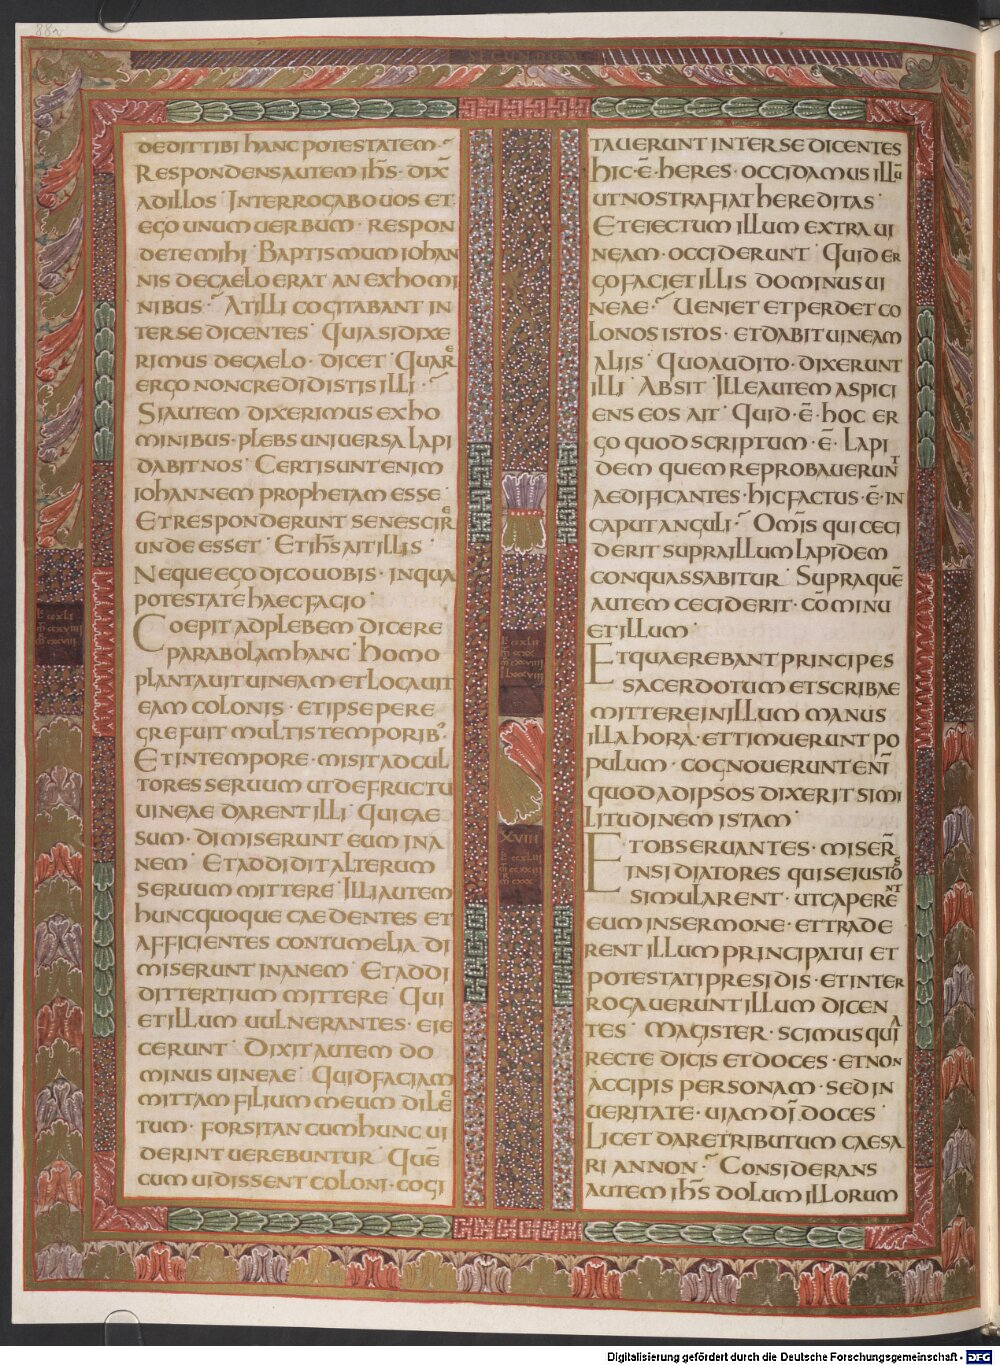 88v
DEDIT TIBI HANC POTESTATEM·
RESPONDENS AUTEM IHS̄· DIX̄
AD ILLOS· INTERROGABO UOS ET
EGO UNUM UERBUM· RESPON
DETE MIHI· BAPTISMUM IOHAN
NIS DE CAELO ERAT AN EX HOMI
NIBUS· AT ILLI COGITABANT IN
TER SE DICENTES· QUIA SI DIXE
RIMUS DE CAELO· DICET· QUARE
ERGO NON CREDIDISTIS ILLI·
SI AUTEM DIXERIMUS EX HO
MINIBUS· PLEBS UNIUERSA LAPI
DABIT NOS· CERTI SUNT ENIM
IOHANNEM PROPHETAM ESSE·
ET RESPONDERUNT SE NESCIRE
UNDE ESSET· ET IHS̄ AIT ILLIS·
NEQUE EGO DICO UOBIS· IN QUA
POTESTATE HAEC FACIO·
COEPIT AD PLEBEM DICERE
PARABOLAM HANC· HOMO
PLANTAUIT UINEAM ET LOCAUIT
EAM COLONIS· ET IPSE PERE
GRE FUIT MULTIS TEMPORIB·
ET IN TEMPORE· MISIT AD CUL
TORES SERUUM UT DE FRUCTU
UINEAE DARENT ILLI· QUI CAE
SUM· DIMISERUNT EUM INA
NEM· ET ADDIDIT ALTERUM
SERUUM MITTERE· ILLI AUTEM
HUNC QUOQUE CAEDENTES ET
AFFICIENTES CONTUMELIA DI
MISERUNT INANEM· ET ADDI
DIT TERTIUM MITTERE· QUI
ET ILLUM UULNERANTES· EIE
CERUNT· DIXIT AUTEM DO
MINUS UINEAE· QUID FACIAM
MITTAM FILIUM MEUM DILEC
TUM· FORSITAN CUM HUNC UI
DERINT UEREBUNTUR· QUĒ
CUM UIDISSENT COLONI· COGI
TAUERUNT INTER SE DICENTES
HIC· Ē· HERES· OCCIDAMUS ILLŪ
UT NOSTRA FIAT HEREDITAS·
ET EIECTUM ILLUM EXTRA UI
NEAM· OCCIDERUNT· QUID ER
GO FACIET ILLIS DOMINUS UI
NEAE· UENIET ET PERDET CO
LONOS ISTOS· ET DABIT UINEAM
ALIIS· QUO AUDITO· DIXERUNT
ILLI· ABSIT· ILLE AUTEM ASPICI
ENS EOS AIT· QUID· Ē· HOC ER
GO QUOD SCRIPTUM· Ē· LAPI
DEM QUEM REPROBAUERUNT
AEDIFICANTES· HIC FACTUS· Ē· IN
CAPUT ANGULI· OMĪS QUI CECI
DERIT SUPRA ILLUM LAPIDEM
CONQUASSABITUR· SUPRA QUĒ
AUTEM CECIDERIT· CŌMINU
ET ILLUM·
ET QUAEREBANT PRINCIPES
SACERDOTUM ET SCRIBAE
MITTERE IN ILLUM MANUS
ILLA HORA· ET TIMUERUNT PO
PULUM· COGNOUERUNT ENĪ
QUOD AD IPSOS DIXERIT SIMI
LITUDINEM ISTAM·
ET OBSERUANTES· MISER̄
INSIDIATORES QUI SE IUSTOS
SIMULARENT· UT CAPERENT
EUM IN SERMONE· ET TRADE
RENT ILLUM PRINCIPATUI ET
POTESTATI PRESIDIS· ET INTER
ROGAUERUNT ILLUM DICEN
TES· MAGISTER· SCIMUS QUIA
RECTE DICIS ET DOCES· ET NON
ACCIPIS PERSONAM· SED IN
UERITATE· UIAM DĪ DOCES·
LICET DARE TRIBUTUM CAESA
RI AN NON· CONSIDERANS
AUTEM IHS̄ DOLUM ILLORUM
XVIII
Digitalisierung gefördert durch die Deutsche Forschungsgemeinschaft - DFG